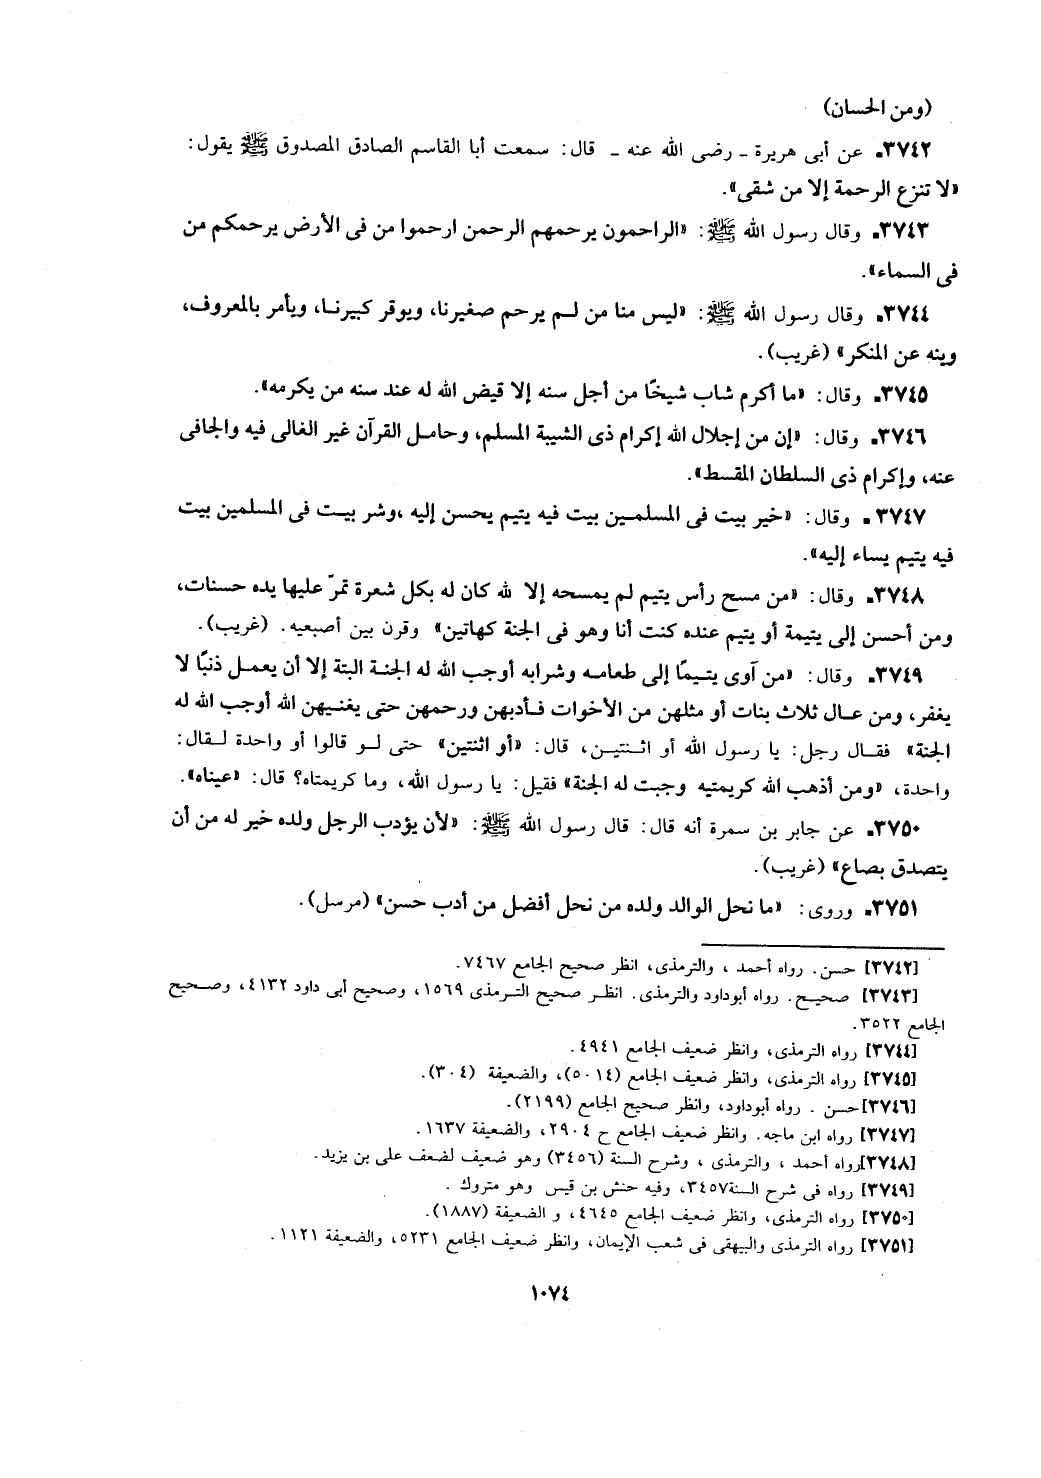 (ومن الحسان)
٣٧٤٢. عن أبى هريرة ـ رضى الله عنه ـ قال: سمعت أبا القاسم الصادق المصدوق ﷺ يقول:
«لا تنزع الرحمة إلا من شقى».
٣٧٤٣. وقال رسول الله ﷺ: «الراحمون يرحمهم الرحمن ارحموا من فى الأرض يرحمكم من
فى السماء».
٣٧٤٤. وقال رسول الله ﷺ: «ليس منا من لـم يرحم صغيرنا، ويوقر كبيرنـا، ويأمر بالمعروف،
وينه عن المنكر» (غريب).
٣٧٤٥. وقال: «ما أكرم شاب شيخًا من أجل سنه إلا قيض الله له عند سنه من يكرمه».
٣٧٤٦. وقال: «إن من إجلال الله إكرام ذى الشيبة المسلم، وحامـل القرآن غير الغالى فيه والجافى
عنه، وإكرام ذى السلطان المقسط».
٣٧٤٧. وقال: «خير بيت فى المسلمـين بيت فيه يتيم يحسن إليه ،وشر بيـت فى المسلمين بيت
فيه يتيم يساء إليه».
٣٧٤٨. وقال: «من مسح رأس يتيم لم يمسحه إلا لله كان له بكل شعرة تمرّ عليها يده حسنات،
ومن أحسن إلى يتيمة أو يتيم عنده كنت أنا وهو فى الجنة كهاتين» وقرن بين أصبعيه. (غريب).
٣٧٤٩. وقال: «من آوى يتـيمًا إلى طعامـه وشرابه أوجب الله له الجنـة البتة إلا أن يعمـل ذنبًا لا
يغفر، ومن عـال ثلاث بنات أو مثلهن من الأخوات فـأدبهن ورحمهن حتى يغنـيهن الله أوجب الله له
الجنة» فقـال رجل: يا رسول الله أو اثـنتيـن، قال: «أو اثنتين» حتى لـو قالوا أو واحدة لـقال:
واحدة، «ومن أذهب الله كريمتيه وجبت له الجنة» فقيل: يا رسول الله، وما كريمتاه؟ قال: «عيناه».
٣٧٥٠. عن جابر بن سمرة أنه قال: قال رسول الله ﷺ: «لأن يؤدب الرجل ولده خير له من أن
يتصدق بصاع» (غريب).
٣٧٥١. وروى: «ما نحل الوالد ولده من نحل أفضل من أدب حسن» (مرسل).
[٣٧٤٢] حسن. رواه أحمد ، والترمذى، انظر صحيح الجامع ٧٤٦٧.
[٣٧٤٣] صحيـح. رواه أبوداود والترمذى. انظـر صحيح التـرمذى ١٥٦٩، وصحيح أبى داود ٤١٣٢، وصـحيح
الجامع ٣٥٢٢.
[٣٧٤٤] رواه الترمذى، وانظر ضعيف الجامع ٤٩٤١.
[٣٧٤٥] رواه الترمذى، وانظر ضعيف الجامع (٥٠١٤)، والضعيفة (٣٠٤).
[٣٧٤٦]حسن . رواه أبوداود، وانظر صحيح الجامع (٢١٩٩).
[٣٧٤٧] رواه ابن ماجه. وانظر ضعيف الجامع ح ٢٩٠٤، والضعيفة ١٦٣٧.
[٣٧٤٨]رواه أحمد ، والترمذى ، وشرح السنة (٣٤٥٦) وهو ضعيف لضعف على بن يزيد.
[٣٧٤٩] رواه فى شرح السنة٣٤٥٧، وفيه حنش بن قيس وهو متروك .
[٣٧٥٠] رواه الترمذى، وانظر ضعيف الجامع ٤٦٤٥، و الضعيفة (١٨٨٧).
[٣٧٥١] رواه الترمذى والبيهقى فى شعب الإيمان، وانظر ضعيف الجامع ٥٢٣١، والضعيفة ١١٢١.
١٠٧٤